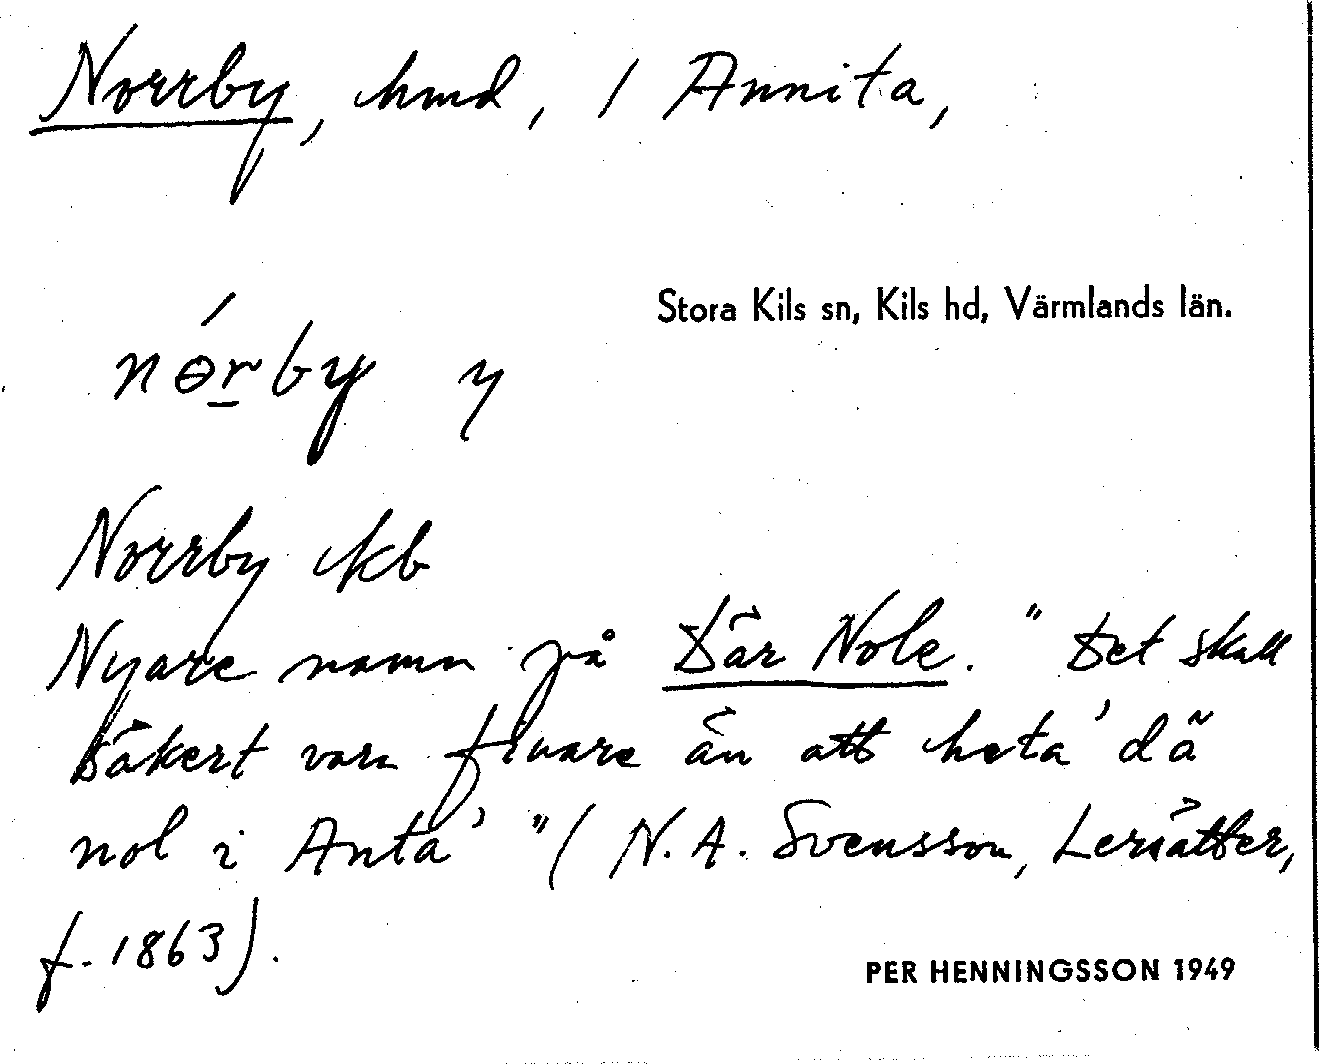 Norrby, hmd, 1 Annita,
Stora Kils sn, Kils hd, Värmlands län.
nɵ́rby y
Norrby kb
Nyare namn på Där Nole. "Det skall
säkert vara finare än att heta 'dä
nol i Anta'" (N. A. Svensson, Lersätter,
f. 1863).
PER HENNINGSSON 1949